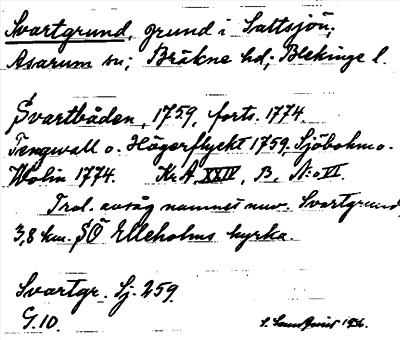 Svartgrund, grund i Saltsjön;
Asarum sn; Bräkne hd; Blekinge l.
Svartbåden, 1759, forts. 1774.
Tengwall o. Hägerflyckt 1759. Sjöbohm o.
Wolin 1774. Kr.A. XXIV, B, N:o VI.
Trol. avsåg namnet nuv. Svartgrund,
3,8 km. SÖ Elleholms kyrka.
Svartgr. Sj. 259.
G. 10.
1936.